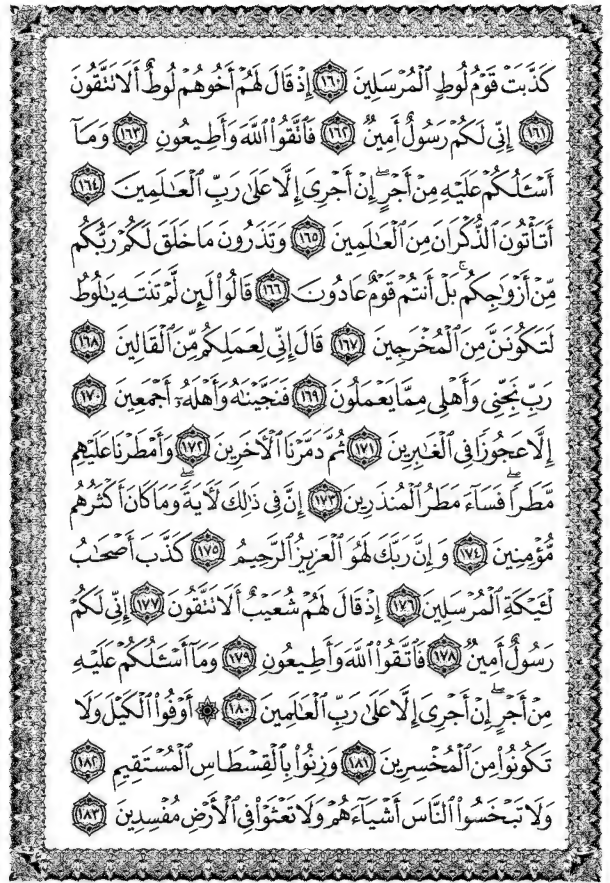 كَذَّبَتْ قَوْمُ لُوطٍ ٱلْمُرْسَلِينَ ١٦٠ إِذْ قَالَ لَهُمْ أَخُوهُمْ لُوطٌ أَلَا تَتَّقُونَ
١٦١ إِنِّي لَكُمْ رَسُولٌ أَمِينٌ ١٦٢ فَٱتَّقُوا۟ ٱللَّهَ وَأَطِيعُونِ ١٦٣ وَمَآ
أَسْـَٔلُكُمْ عَلَيْهِ مِنْ أَجْرٍ ۖ إِنْ أَجْرِىَ إِلَّا عَلَىٰ رَبِّ ٱلْعَـٰلَمِينَ ١٦٤
أَتَأْتُونَ ٱلذُّكْرَانَ مِنَ ٱلْعَـٰلَمِينَ ١٦٥ وَتَذَرُونَ مَا خَلَقَ لَكُمْ رَبُّكُم
مِّنْ أَزْوَٰجِكُم ۚ بَلْ أَنتُمْ قَوْمٌ عَادُونَ ١٦٦ قَالُوا۟ لَئِن لَّمْ تَنتَهِ يَـٰلُوطُ
لَتَكُونَنَّ مِنَ ٱلْمُخْرَجِينَ ١٦٧ قَالَ إِنِّى لِعَمَلِكُم مِّنَ ٱلْقَالِينَ ١٦٨
رَبِّ نَجِّنِى وَأَهْلِى مِمَّا يَعْمَلُونَ ١٦٩ فَنَجَّيْنَـٰهُ وَأَهْلَهُۥٓ أَجْمَعِينَ ١٧٠
إِلَّا عَجُوزًا فِى ٱلْغَـٰبِرِينَ ١٧١ ثُمَّ دَمَّرْنَا ٱلْـَٔاخَرِينَ ١٧٢ وَأَمْطَرْنَا عَلَيْهِم
مَّطَرًا ۖ فَسَآءَ مَطَرُ ٱلْمُنذَرِينَ ١٧٣ إِنَّ فِى ذَٰلِكَ لَـَٔايَةً ۖ وَمَا كَانَ أَكْثَرُهُم
مُّؤْمِنِينَ ١٧٤ وَإِنَّ رَبَّكَ لَهُوَ ٱلْعَزِيزُ ٱلرَّحِيمُ ١٧٥ كَذَّبَ أَصْحَـٰبُ
لْـَٔيْكَةِ ٱلْمُرْسَلِينَ ١٧٦ إِذْ قَالَ لَهُمْ شُعَيْبٌ أَلَا تَتَّقُونَ ١٧٧ إِنِّى لَكُمْ
رَسُولٌ أَمِينٌ ١٧٨ فَٱتَّقُوا۟ ٱللَّهَ وَأَطِيعُونِ ١٧٩ وَمَآ أَسْـَٔلُكُمْ عَلَيْهِ
مِنْ أَجْرٍ ۖ إِنْ أَجْرِىَ إِلَّا عَلَىٰ رَبِّ ٱلْعَـٰلَمِينَ ١٨٠ ۞ أَوْفُوا۟ ٱلْكَيْلَ وَلَا
تَكُونُوا۟ مِنَ ٱلْمُخْسِرِينَ ١٨١ وَزِنُوا۟ بِٱلْقِسْطَاسِ ٱلْمُسْتَقِيمِ ١٨٢
وَلَا تَبْخَسُوا۟ ٱلنَّاسَ أَشْيَآءَهُمْ وَلَا تَعْثَوْا۟ فِى ٱلْأَرْضِ مُفْسِدِينَ ١٨٣